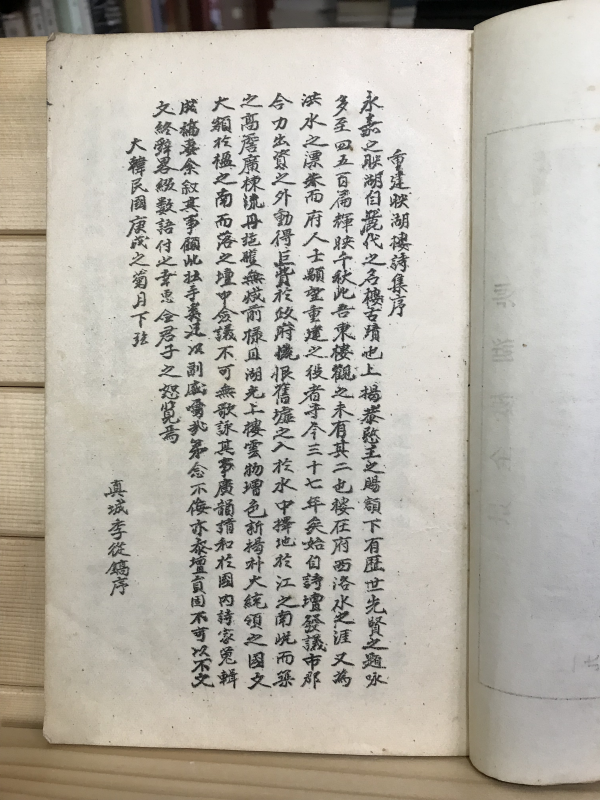 重建映湖樓詩集序
永嘉之映湖自麗代之名樓古蹟也上揚恭愍主之賜額下有歷世先賢之題咏
多至四五百篇輝映千秋此吾東樓觀之未有其二也樓在府西洛水之涯又為
洪水之漂矣而府人士顒望重建之役者于今三十七年矣始自詩壇發議市郡
合力出資之外動得巨貲於政府慨恨舊墟之入於水中擇地於江之南岸而築
之高甍廣棟流丹施雘無減前樣且湖光上樓雲物增色新揭朴大統領之國文
大額於楹之南而落之壇中僉議不可無歌詠其事廣韻請和於國內詩家蒐輯
成編要余叙其事顧此拙手豈足以副盛囑哉第念不佞亦忝壇員固不可以不文
文終辭畧綴數語付之幸惠僉君子之恕覽焉
大韓民國庚戌之菊月下弦
真城李從鎬序